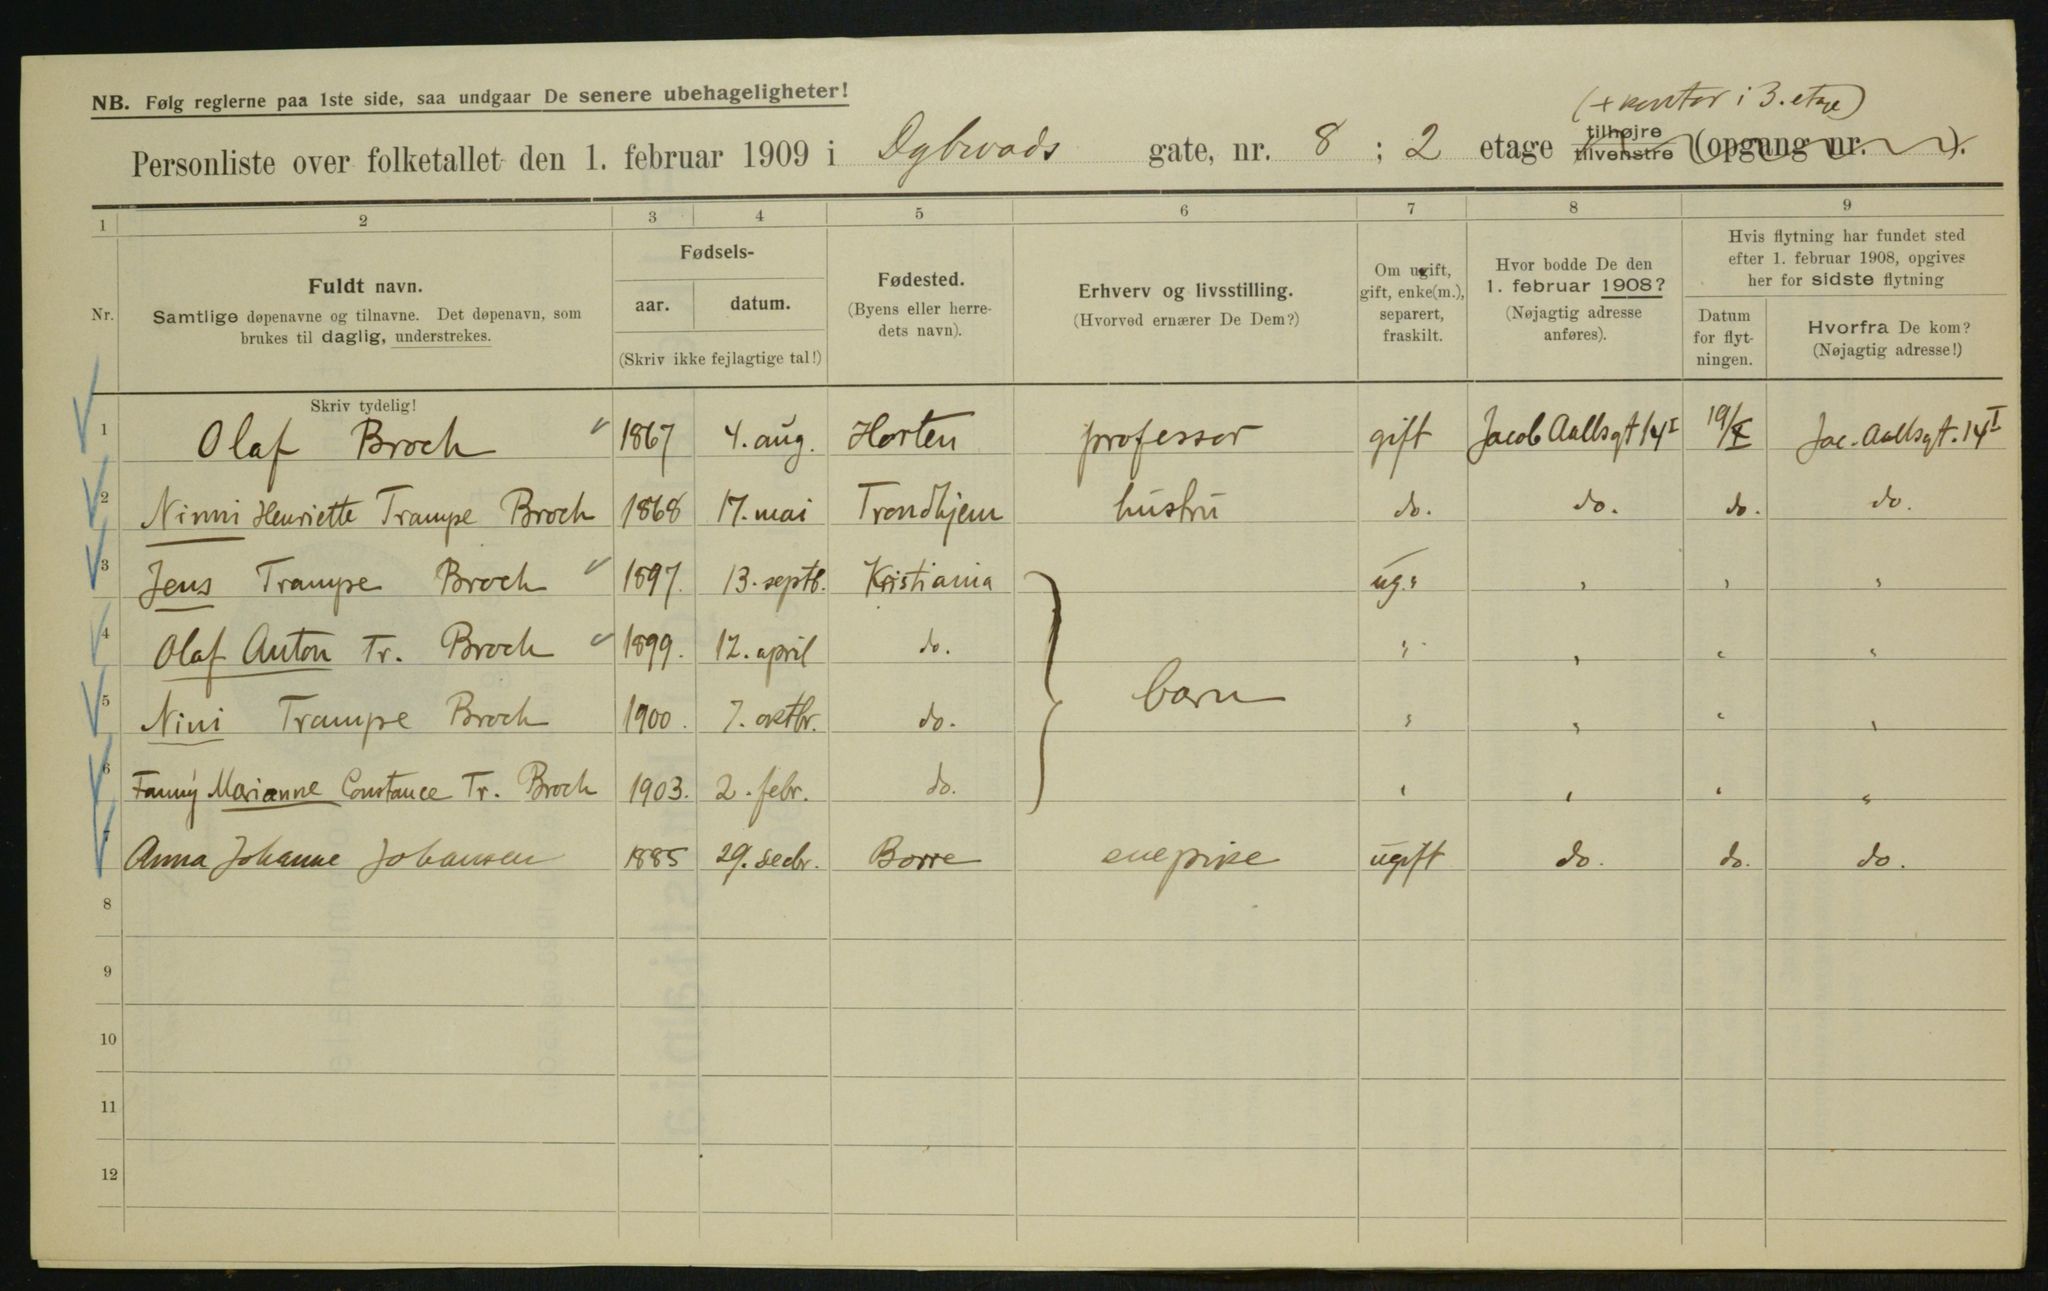 NB. Følg reglerne paa 1ste side, saa undgaar De senere ubehageligheter!
(+ kontor i 3. etage)
Personliste over folketallet den 1. februar 1909 i Dybwads gate, nr. 8 ; 2 etage tilhøjre tilvenstre (opgang nr. ).
1 2 3 4 5 6 7 8 9
Nr.
Fuldt navn.
Samtlige døpenavne og tilnavne. Det døpenavn, som
brukes til daglig, understrekes.
Fødsels-
aar. datum.
(Skriv ikke fejlagtige tal!)
Fødested.
(Byens eller herre-
dets navn).
Erhverv og livsstilling.
(Hvorved ernærer De Dem?)
Om ugift,
gift, enke(m.),
separert,
fraskilt.
Hvor bodde De den
1. februar 1908?
(Nøjagtig adresse
anføres).
Hvis flytning har fundet sted
efter 1. februar 1908, opgives
her for sidste flytning
Datum
for flyt-
ningen.
Hvorfra De kom?
(Nøjagtig adresse!)
Skriv tydelig!
1 Olaf Broch 1867 4. aug. Horten professor gift Jacob Aallsgt 14 I 19/X Jac. Aallsgt. 14 I
2 Ninni Henriette Trampe Broch 1868 17. mai Trondhjem hustru do. do. do. do.
3 Jens Trampe Broch 1897. 13. septb. Kristiania ug. " " " "
4 Olaf Anton Tr. Broch 1899. 12. april do. " " " "
5 Nini Trampe Broch 1900. 7. oktbr. do. barn " " " "
6 Fanny Marianne Constance Tr. Broch 1903. 2. febr. do. " " " "
7 Anna Johanne Johansen 1885 29. decbr. Borre enepike ugift do. do. do.
8
9
10
11
12